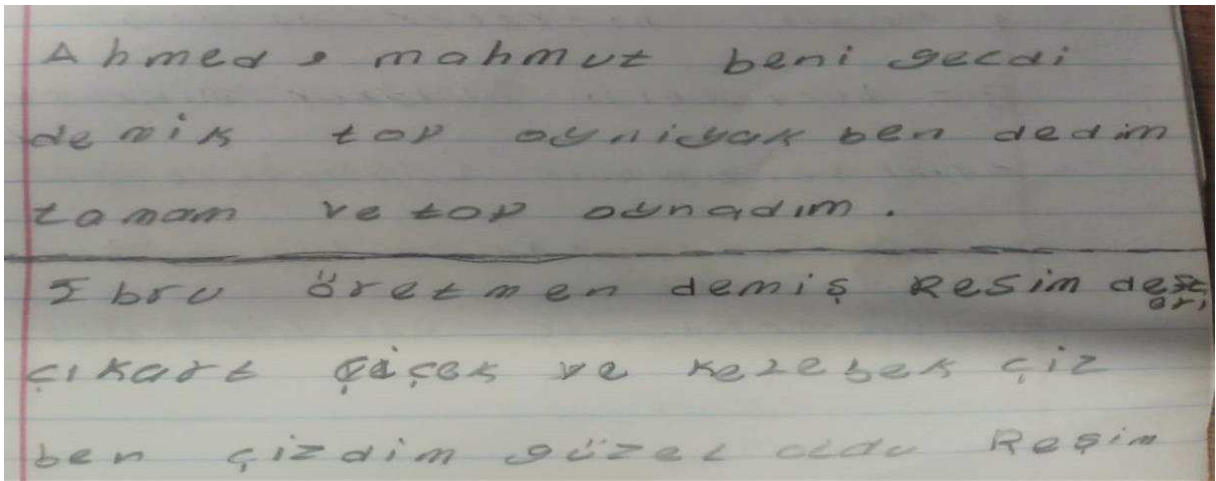 Ahmed, mahmut beni gecdi
demik top oyniyak ben dedim
tamam ve top oynadım.
Ebru öretmen demiş Resim
çıkart çiçek ve kezebek çiz
ben çizdim güzel oldu Resim